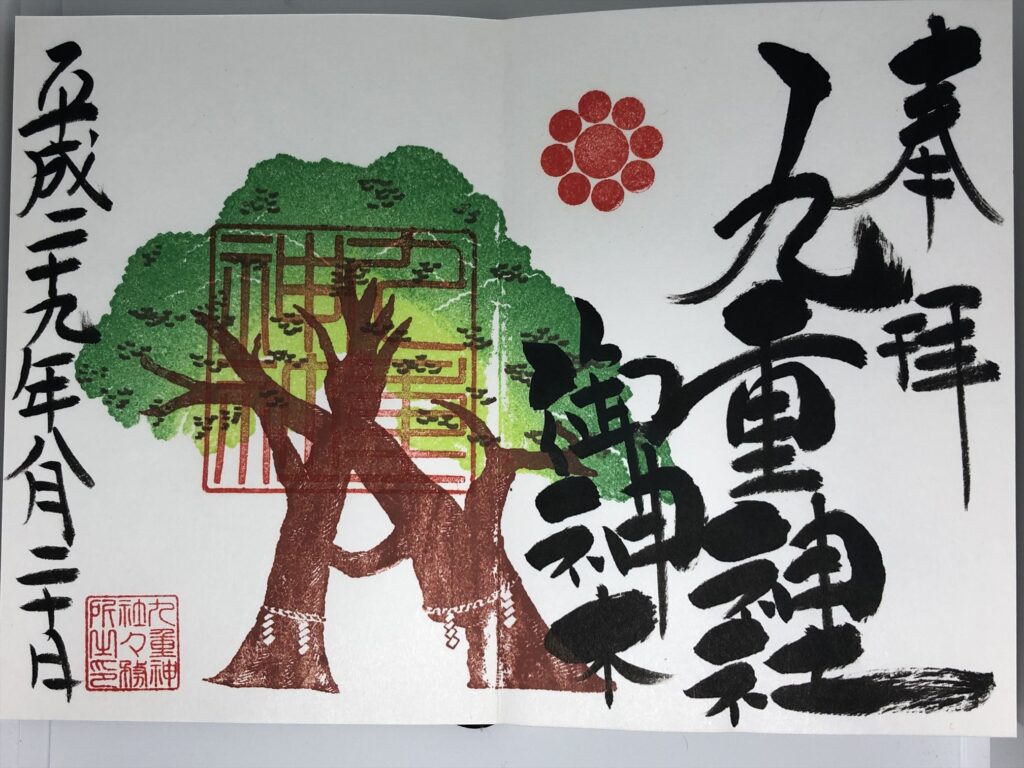 奉拝
九重神社
御神木
平成二十九年八月二十日
九重神
社々務
所之印
九重
神社